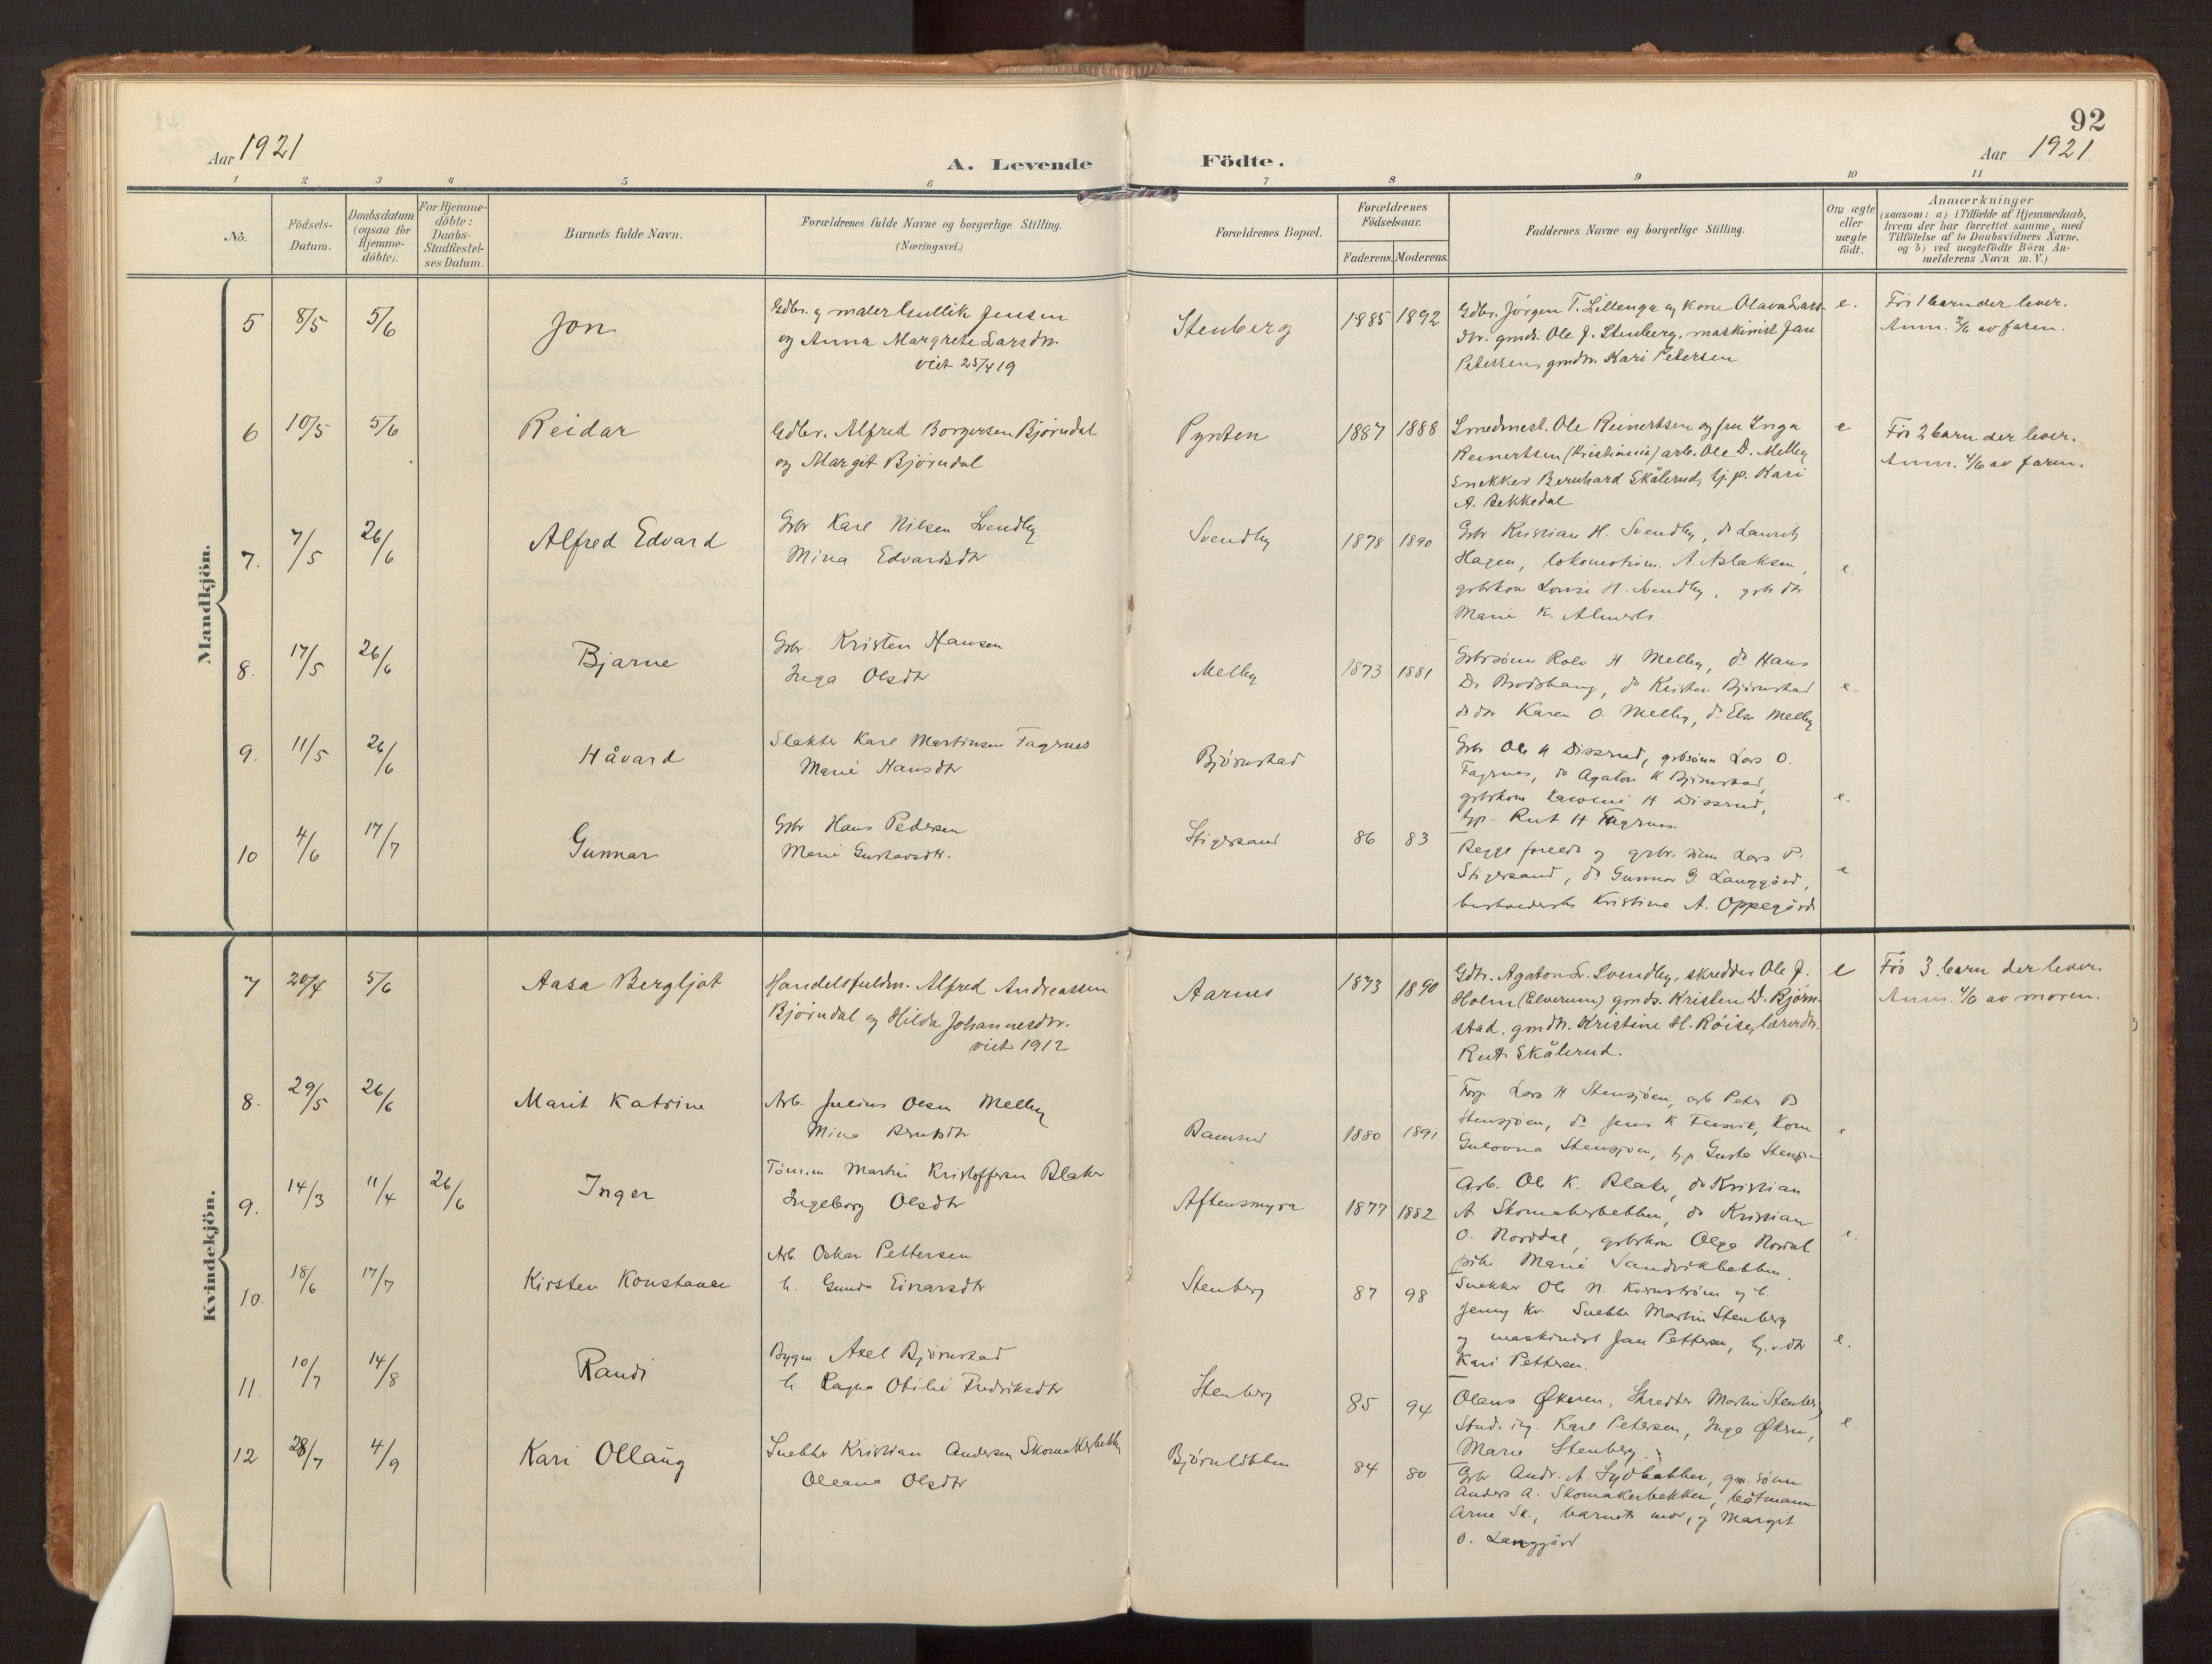 92
Aar 1921
A. Levende Födte.
Aar 1921
1 2 3 4 5 6 7 8 9 10 11
No.
Födsels-Datum.
Daabsdatum (ogsaa for Hjemme-döbte).
For Hjemme-döbte: Daabs-Stadfæstel-ses Datum.
Barnets fulde Navn.
Forældrenes fulde Navne og borgerlige Stilling.
(Næringsvei.)
Forældrenes Bopæl.
Forældrenes Födselsaar.
Faderens. Moderens.
Faddernes Navne og borgerlige Stilling.
Om ægte eller uægte födt.
Anmærkninger
(saasom: a) i Tilfælde af Hjemmedaab,
hvem der har forrettet samme, med
Tilföielse af to Daabsvidners Navne,
og b) ved uægtefödte Börn An-
melderens Navn m.V.)
Mandkjön.
5 8/5 5/6 Jon
Gdbr. og maler Gullik Jensen
og Anna Margrete Larsdtr.
viet 25/4 19
Stenberg 1885 1892
Gdbr. Jörgen T. Lillenga og kone Olava Lars-
dtr. gmds. Ole J. Stenberg, maskinist Jan
Petersen, gmdtr. Kari Petersen
e.
För 1 barn der lever.
Anm. av faren.
6 10/5 5/6 Reidar
Gdbr. Alfred Borgersen Bjørndal
og Margit Bjørndal
Pynten 1887 1888
Smedmest. Ole Reinertsen og fru Inga
Reinertsen (Kristiania) arb. Ole D. Melby
snekker Bernhard Skålerud, tj.p. Kari
A. Bekkedal
e
För 2 barn der lever.
Anm. 4/6 av faren.
7. 7/5 26/6 Alfred Edvard
Gbr Karl Nilsen Svendby
Mina Edvardsdtr
Svendby 1878 1890
Gbr Kristian H. Svendby, do Laurits
Hagen, lokomotivm. A. Aslaksen,
gbrkone Lovise H. Svendby, gbr dtr
Marie K.
e.
8. 17/5 26/6 Bjarne
Gbr. Kristen Hansen
Inga Olsdtr
Melby 1873 1881
Gbrsönn Rolv H. Melby, do Hans
do Kristen Bjørnstad
do dtr Karen O. Melby, do Else Melby
e.
9. 11/5 26/6 Håvard
Slakter Karl Martinsen Fagrnes
Marie Hansdtr
Bjørnstad
Gbr Ole H Disserud, gbrsönn Lars O.
Fagrnes, do Agaton K Bjørnstad,
gbrkone Karoline H Disserud,
tjp. Rut H Fagrnes
e.
10 4/6 17/7 Gunnar
Gbr Hans Pedersen
Marie Gustavsdtr.
Stigersand 86 83
Begge foreldr og gbr. sönn Lars P.
Stigersand, do Gunnar G Langgård,
Kristine A. Oppegård
e
Kvindekjön.
7 20/4 5/6 Aasa Bergljot
Handelsfuldm. Alfred Andreassen
Bjørndal og Hilda Johannesdtr.
viet 1912
Aarnes 1873 1890
Gdbr. Agaton Svendby, skredder Ole J.
Holm (Elverum) gmds. Kristen D. Bjørn-
stad. gmdtr. Kristine H. Röise, lærerdtr.
Rut Skålerud.
e
För 3 barn der lever.
Anm. 4/6 av moren.
8. 29/5 26/6 Marit Katrine
Arb. Julius Olsen Melby
Mina Berntsdtr
1880 1891
Forp Lars H Stensjöen, arb Peter B
Stensjöen, do Jens K, Kone
Gulovna Stensjöen, tj.p. Gusta Stensjöen
e
9. 14/3 11/4 26/6 Inger
Tömm. Martin Kristoffersen Blaker
Ingeborg Olsdtr
Aftensmyra 1877 1882
Arb. Ole K. Blaker, do Kristian
A Skomakerbekken, do Kristian
O. Norddal, gbrkone Olga Nordal
pike Marie Sandvikbekken.
e.
10. 18/6 17/7 Kirsten Konstanse
Arb. Oskar Pettersen
h. Gunda Einarsdtr
Stenberg 87 98
Snekker Ole N. Kvernstrøm og h.
Jenny Kv. Snekker Martin Stenberg
og maskinist Jan Pettersen, dtr
Kari Pettersen.
e.
11. 10/7 14/8 Randi
Bygm. Axel Bjørnstad
h. Ragna Otilie Fredriksdtr
Stenberg 85 94
Olaus Økeren, Skredder Martin Stenberg,
Stud. ing. Karl Petersen, Inga Økern,
Marie Stenberg
e.
12 28/7 4/9 Kari Ollaug
Snekker Kristian Andersen Skomakerbekken
Oleana Olsdtr
84 80
Gbr Andr. A. gm. sönn
Anders A. Skomakerbekken, båtmann
Arne Sk., barnets mor, og Margit
O. Langgård